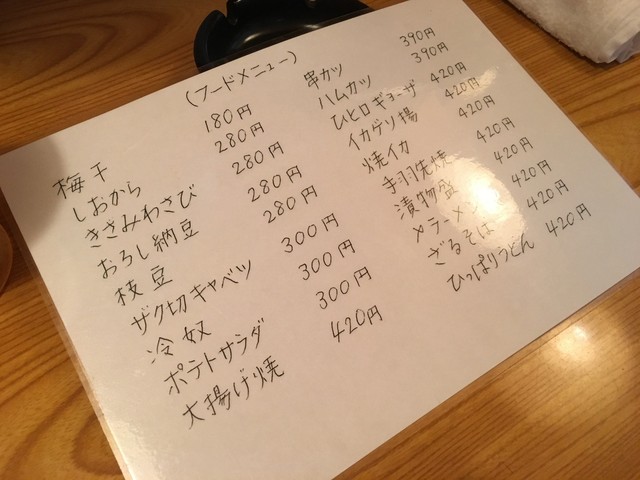 (フードメニュー)
梅干 180円
しおから 280円
きざみわさび 280円
おろし納豆 280円
枝豆 280円
ザク切キャベツ 300円
冷奴 300円
ポテトサラダ 300円
大揚げ焼 420円
串カツ 390円
ハムカツ 390円
ひと口ギョーザ 420円
イカゲソ揚 420円
焼イカ 420円
手羽先焼 420円
漬物盛 420円
〆ラーメン 420円
ざるそば 420円
ひっぱりうどん 420円